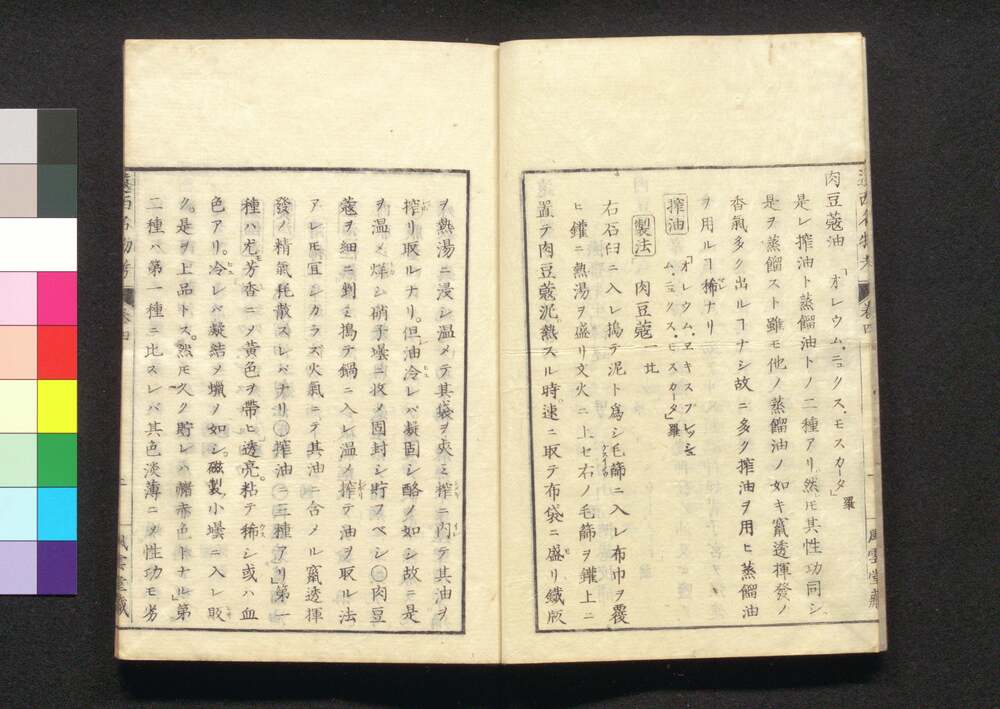 肉豆蔻油「オレウム、ニュクス、モスカータ」羅
是レ搾油ト蒸餾油トノ二種アリ然𪜈其性功同シ
是ヲ蒸餾スト雖モ他ノ蒸餾油ノ如キ竄透揮發ノ
香氣多ク出ルヿナシ故ニ多ク搾油ヲ用ヒ蒸餾油
ヲ用ルヿ稀ナリ
搾油「オレウム、ヱキスプレッシュム、ニュクス、モスカータ」羅
製法 肉豆蔻
右石臼ニ入レ搗テ泥ト爲シ毛篩ニ入レ布巾ヲ覆
ヒ鑵ニ熱湯ヲ盛リ文火ニ上セ右ノ毛篩ヲ鑵上ニ
置テ肉豆蔻泥熱スル時速ニ取テ布袋ニ盛リ鐵版
ヲ熱湯ニ浸シ温メテ其袋ヲ夾ミ搾ニ内テ其油ヲ
搾リ取ルナリ。但油冷レバ凝固シ酪ノ如シ故ニ是
ヲ温メ烊シ硝子壜ニ收メ固封シ貯フベシ〇肉豆
蔻ヲ細ニ剉ミ搗テ鍋ニ入レ温メ搾テ油ヲ取ル法
アレ𪜈宜シカラズ火氣ニテ其油ニ含メル竄透揮
發ノ精氣耗散スレバナリ〇搾油ニ三種アリ「第一
種ハ尤芳香ニメ黄色ヲ帶ヒ透亮。粘テ稀シ或ハ血
色アリ。冷レバ凝結メ蠟ノ如シ。磁製ノ小壜ニ入レ取
ク。是ヲ上品トス。然𪜈久ク貯レハ赭赤色トナル「第
二種ハ第一種ニ比スレバ其色淡薄ニメ性功モ劣
卷四